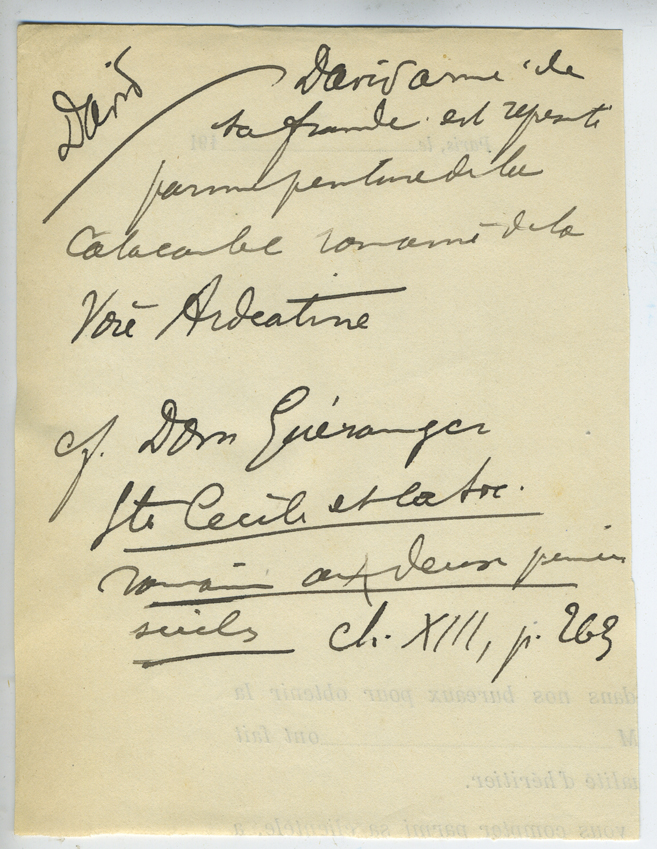 David
David armé de
sa fronde est représenté
parmi peinture de la
Catacombe romaine de la
Voie Ardéatine
cf. Dom Guéranger
Ste Cécile et la Soc.
romaine aux deux premiers
siècles ch. XIII, p. 263
Paris, le 191
dans nos bureaux pour obtenir la
M ont fait
alité d'héritier.
vous compter parmi sa clientèle, a